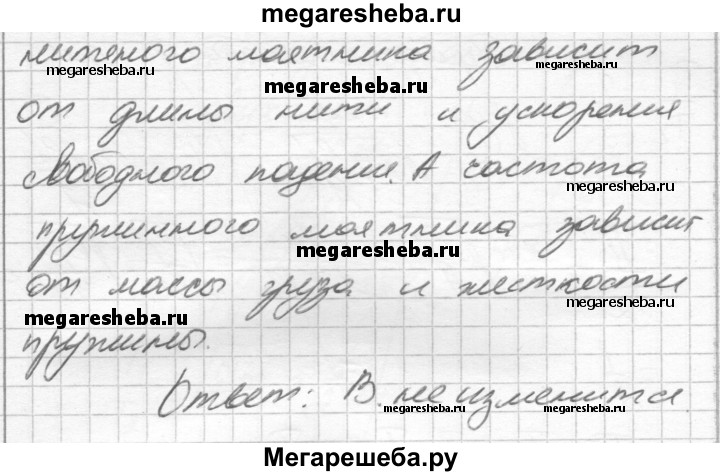 megaresheba.ru
нитяного маятника зависит
megaresheba.ru megaresheba.ru megaresheba.ru
от длины нити и ускорения
свободного падения. А частота
megaresheba.ru
пружинного маятника зависит
megaresheba.ru
от массы груза и жесткости
megaresheba.ru megaresheba.ru
пружины.
Ответ: В. не изменится.
megaresheba.ru megaresheba.ru
Мегарешеба.ру